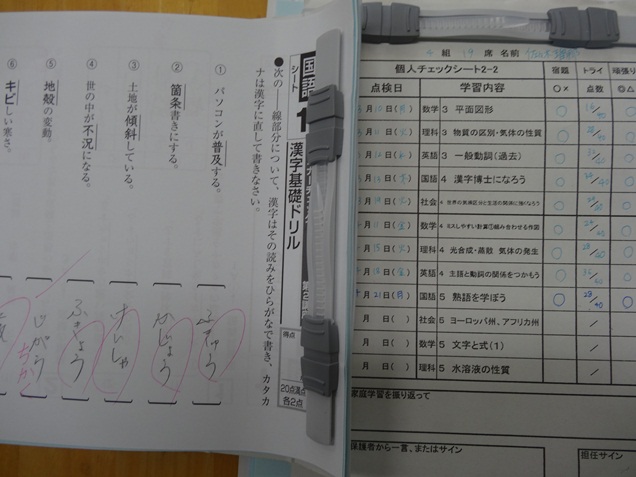 国語
シート
1
漢字基礎ドリル
得点
20点満点
各2点
次の―線部分について、漢字はその読みをひらがなで書き、カタカ
ナは漢字に直して書きなさい。
① パソコンが普及する。
ふきゅう
② 箇条書きにする。
かじょう
③ 土地が傾斜している。
けいしゃ
④ 世の中が不況になる。
ふきょう
⑤ 地殻の変動。
⑥ キビしい寒さ。
4 組 19 席 名前
個人チェックシート2-2
点検日 学習内容 宿題 ○× トライ 点数 頑張り ◎△
月 日 数学 3 平面図形
月 日 理科 3 物質の区別・気体の性質
月 日 英語 3 一般動詞(過去)
月 日 国語 4 漢字博士になろう
月 日 社会 4 世界の気候区分と生活の関係に強くなろう
月 11 日 数学 4 ミスしやすい計算①組み合わせる作図
月 15 日(火) 理科 4 光合成・蒸散 気体の発生
月 18 日(金) 英語 4 主語と動詞の関係をつかもう
月 21 日(月) 国語 5 熟語を学ぼう 28/40
月 日( ) 社会 5 ヨーロッパ州、アフリカ州 /
月 日( ) 数学 5 文字と式(1) /
月 日( ) 理科 5 水溶液の性質 /
家庭学習を振り返って
保護者から一言、またはサイン
担任サイン